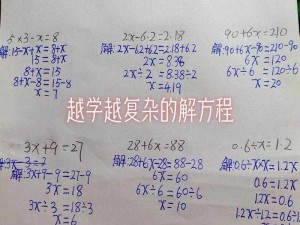 5×3-x=8
解:15-x+x=8+x
15=8+x
8+x=15
8+x-8=15-8
x=7
2x-6.2=2.18
解:2x-6.2+6.2=2.18+6.2
2x=8.38
2x÷2=8.38÷2
x=4.19
90+6x=210
解:90+6x-90=210-90
6x=120
6x÷6=120÷6
x=20
越学越复杂的解方程
3x+9=27
3x+9-9=27-9
3x=18
3x÷3=18÷3
x=6
28+6x=88
解:28+6x-28=88-28
6x=60
6x÷6=60÷6
x=10
0.6÷x=1.2
解:0.6÷x×x=1.2x
0.6=1.2x
1.2x=0.6
1.2x÷1.2=0.6